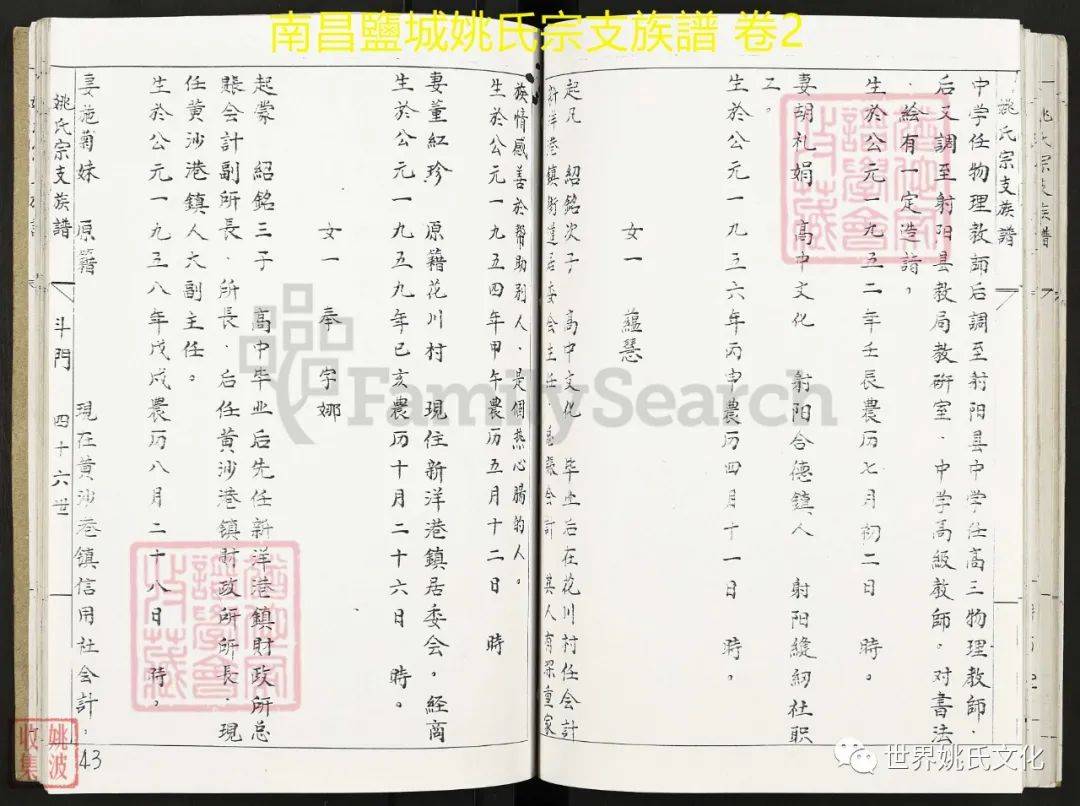 南昌鹽城姚氏宗支族譜 卷2
姚氏宗支族譜
姚氏宗支族譜
中学任物理教師后調至射阳县中学任高三物理教師.
后又調至射阳县教局教研室.中学高級教師。对書法
.绘有一定造詣,
生於公元一九五二年壬辰農历七月初二日 時。
妻胡礼娟 高中文化 射阳合德鎮人 射阳縫紉社职
工。
生於公元一九三六年丙申農历四月十一日 時。
女一 蘊慧
起凡 紹銘次子 高中文化 毕业后在花川村任会計
新洋港鎮街道居委会主任. 会計 其人有深重家
族情感善於幫助别人.是個热心腸的人。
生於公元一九五四年甲午農历五月十二日 時
妻董紅珍 原籍花川村 現住新洋港鎮居委会.经商
生於公元一九五九年已亥農历十月二十六日 時。
女一 奉 宇娜
起蒙 紹銘三子 高中毕业后先任新洋港鎮財政所总
賬会計副所長.所長.后任黄沙港鎮財政所所長.現
任黄沙港鎮人大副主任。
生於公元一九三八年戊戌農历八月二十八日 時,
妻施蘭妹 原籍 現在黄沙港鎮信用社会計,
姚氏宗支族譜
斗門
四十六世
43
姚波
收集
FamilySearch
世界姚氏文化